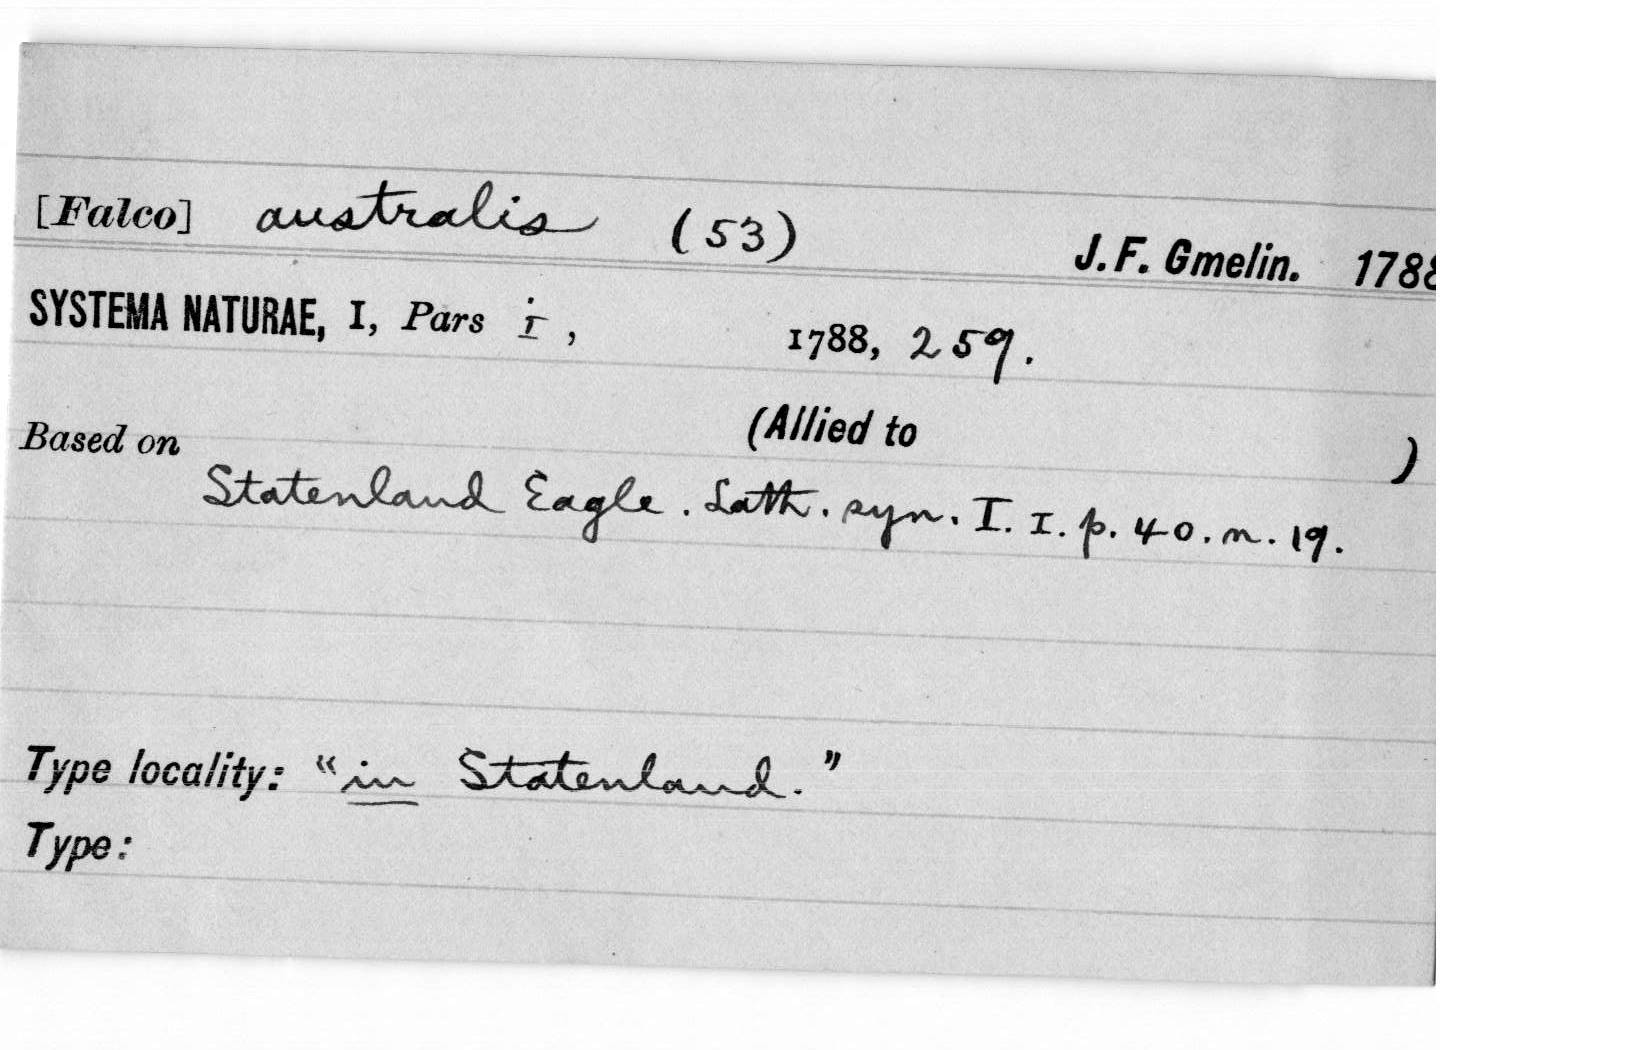 [Falco] australis (53) J.F. Gmelin. 1788
SYSTEMA NATURAE, I, Pars i, 1788, 259.
Based on (Allied to )
Statenland Eagle. Lath. syn. I. I. p. 40. n. 19.
Type locality: "in Statenland."
Type: